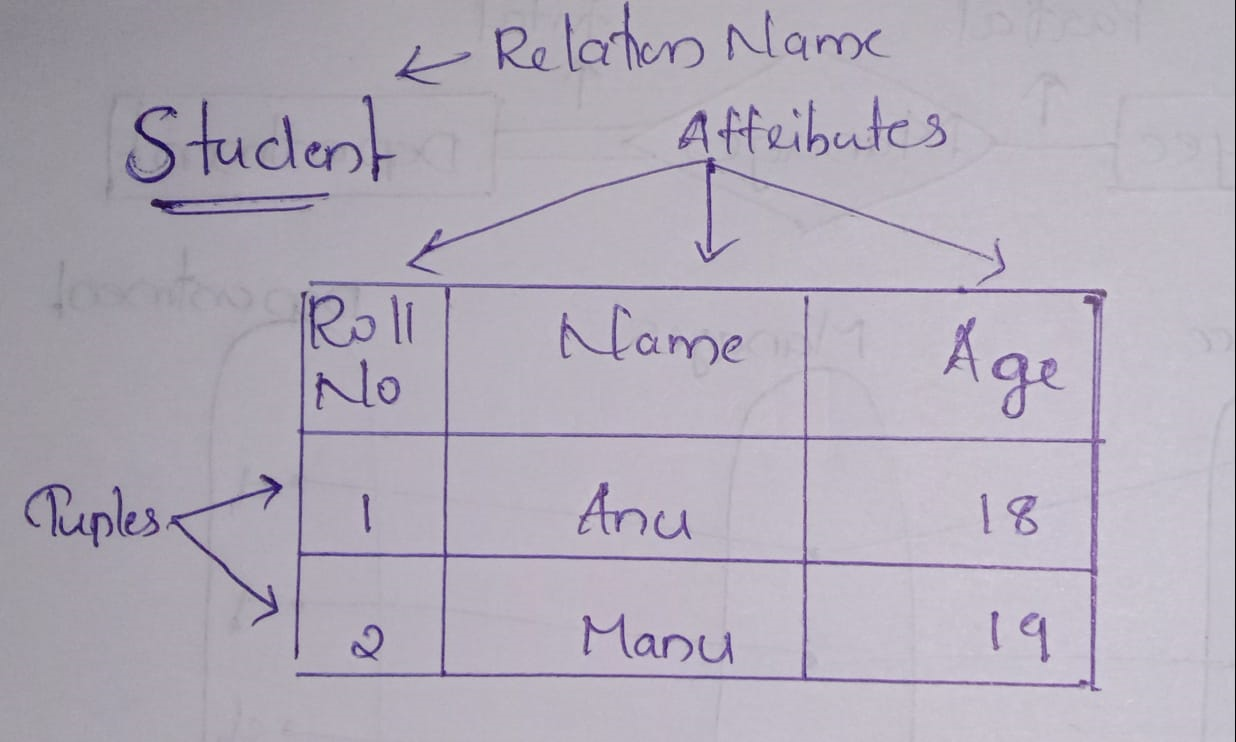 ← Relation Name
Student
Attributes
Roll No
Name
Age
Tuples
1
Anu
18
2
Manu
19